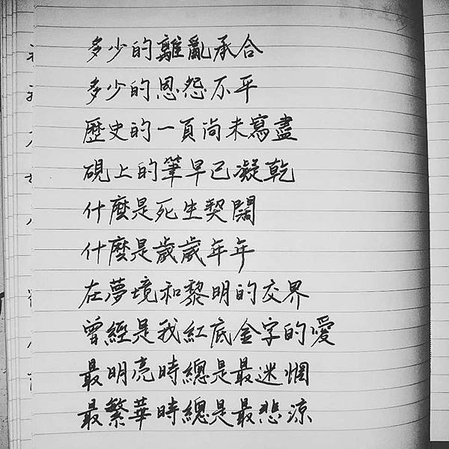 多少的離亂承合
多少的恩怨不平
歷史的一頁尚未寫盡
硯上的筆早已凝乾
什麼是死生契闊
什麼是歲歲年年
在夢境和黎明的交界
曾經是我紅底金字的愛
最明亮時總是最迷惘
最繁華時總是最悲涼